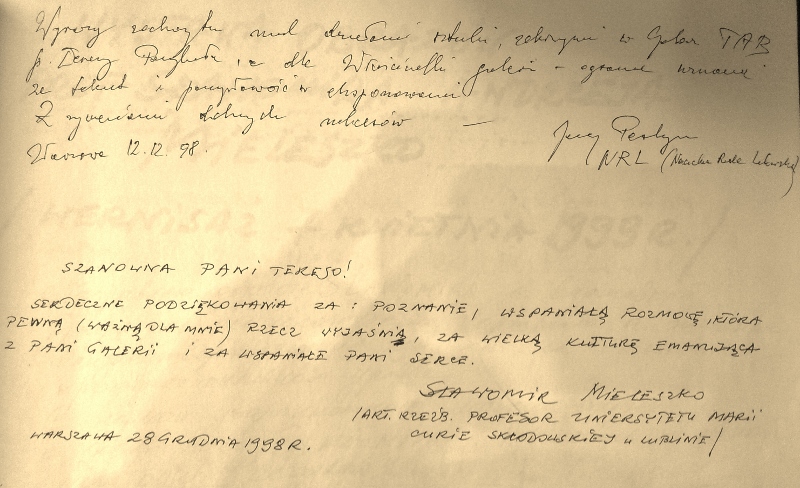 Wyrazy zachwytu nad dziełami sztuki, zebranymi w Galerii TAR
p. Teresy, a dla Właścicielki galerii – ogromne uznanie
za talent i pomysłowość w eksponowaniu
Z życzeniami dalszych sukcesów —
Jerzy
Warszawa 12.12.98.
NRL (Naczelna Rada Lekarska)
/WERNISAŻ KWIETNIA 1999R./
SZANOWNA PANI TERESO!
SERDECZNE PODZIĘKOWANIA ZA : POZNANIE, WSPANIAŁĄ ROZMOWĘ, KTÓRA
PEWNĄ (WAŻNĄ DLA MNIE) RZECZ WYJAŚNIA, ZA WIELKĄ KULTURĘ EMANUJĄCĄ
Z PANI GALERII I ZA WSPANIAŁE PANI SERCE.
SŁAWOMIR MIELESZKO
/ART. RZEŹB. PROFESOR UNIERSYTETU MARII
CURIE SKŁODOWSKIEJ W LUBLINIE/
WARSZAWA 28 GRUDNIA 1998R.